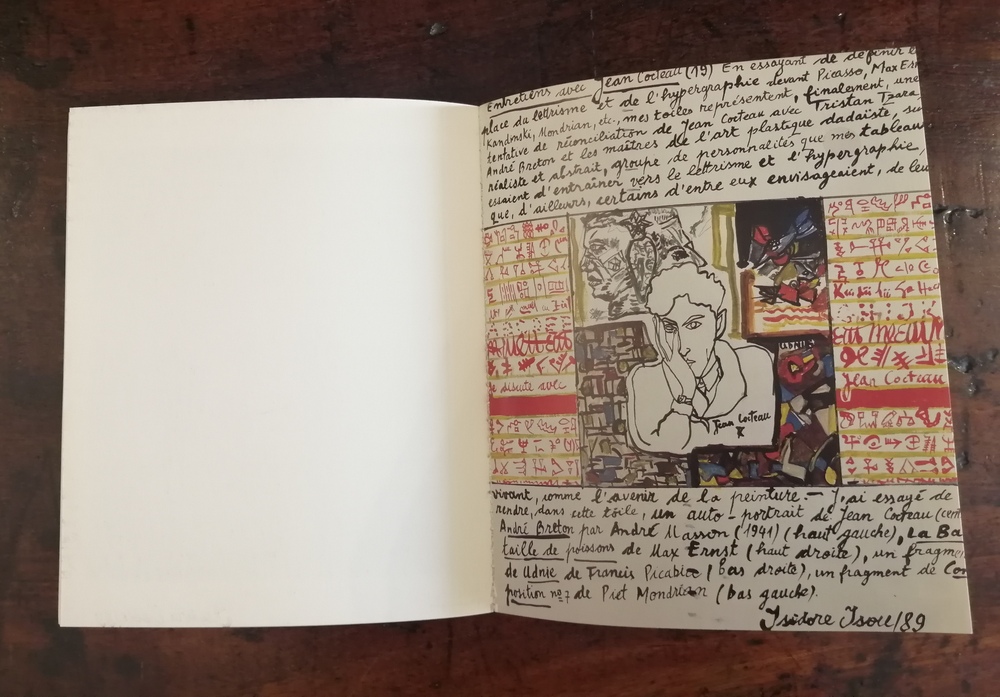 Entretiens avec Jean Cocteau (19) En essayant de définir
place du lettrisme et de l'hypergraphie devant Picasso, Max
Kandinski, Mondrian, etc., mes toiles représentent, finalement, une
tentative de réconciliation de Jean Cocteau avec Tristan Tzara,
André Breton et les maîtres de l'art plastique dadaïste, su
réaliste et abstrait, groupe de personnalités que mes tableau
essaient d'entraîner vers le lettrisme et l'hypergraphie,
que, d'ailleurs, certains d'entre eux envisageaient, de leur
UDNIE
Je discute avec
Jean Cocteau
Jean Cocteau
vivant, comme l'avenir de la peinture.— J'ai essayé de
rendre, dans cette toile, un auto-portrait de Jean Cocteau (cen
André Breton par André Masson (1941) (haut gauche), La Ba
taille de poissons de Max Ernst (haut droite), un fragme
de Udnie de Francis Picabia (bas droite), un fragment de Com
position nº7 de Piet Mondrian (bas gauche).
Isidore Isou/89